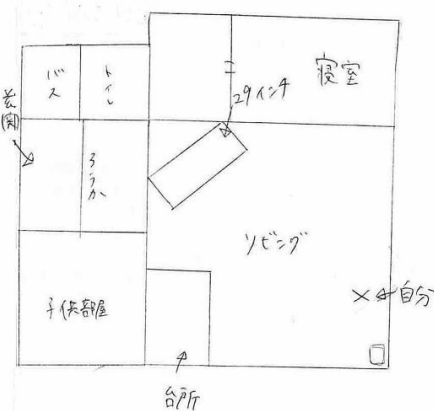 バス
トイレ
寝室
29インチ
玄関
ろうか
リビング
子供部屋
自分
台所